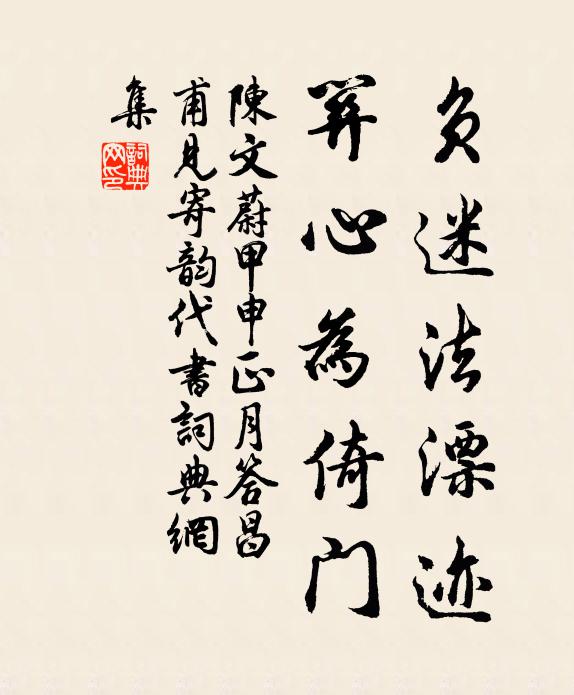 负迷法漂迹
心為倚門
陳文蔚甲申正月答昌
甫見寄韵代書詞典網
集
詞典
网印